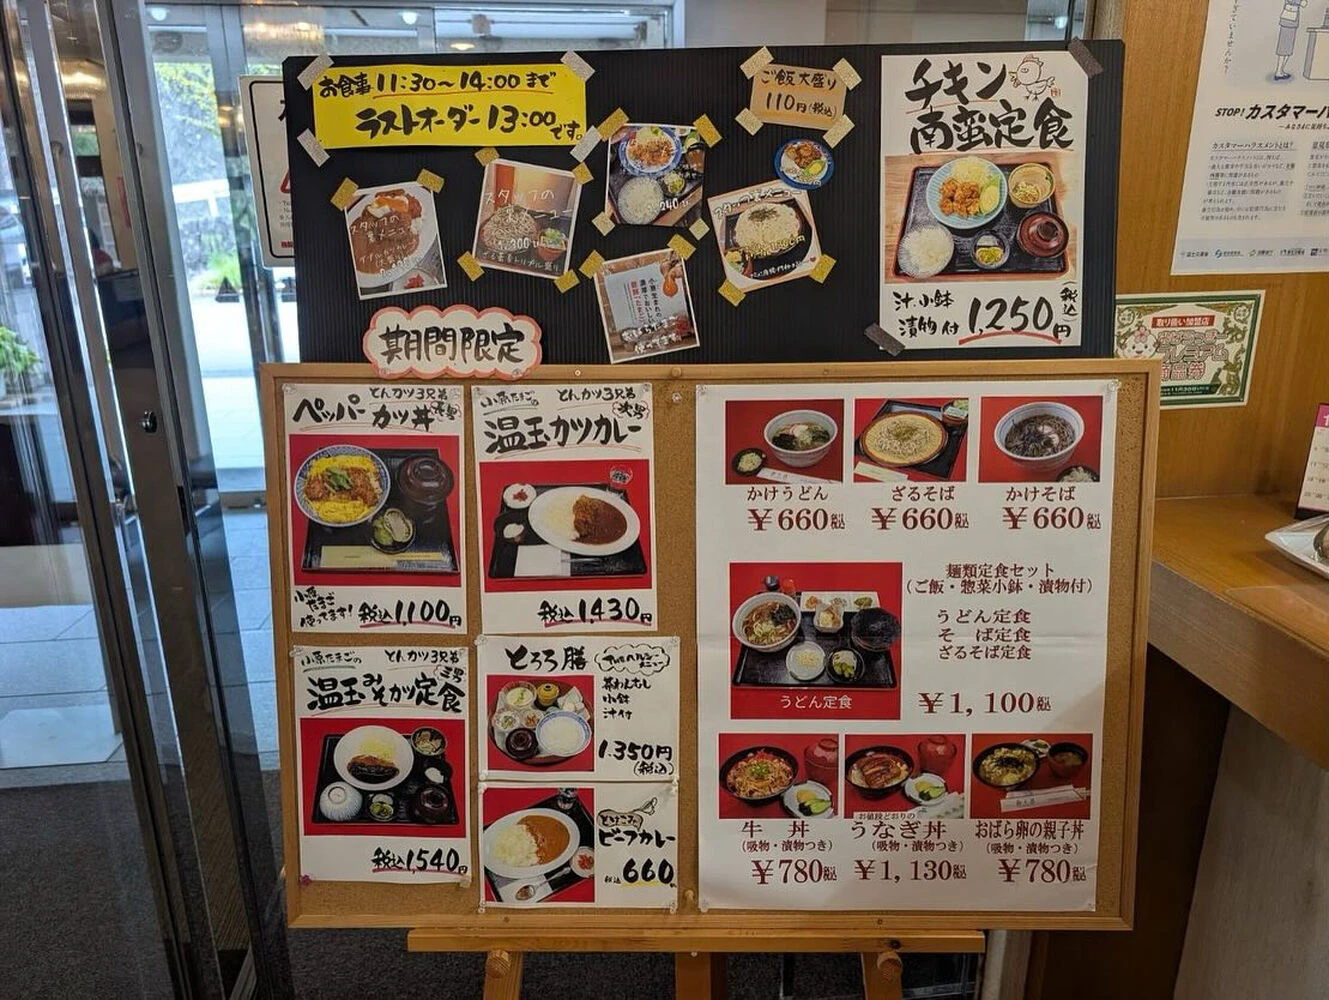 お食事11:30～14:00まで
ラストオーダー13:00です。
ご飯大盛り
110円(税込)
チキン
南蛮定食
汁.小鉢
漬物付
1,250円
(税込)
スタッフの
裏メニュー
スタッフの
裏メニュー
スタッフ裏メニュー
期間限定
とんかつ3兄弟
ペッパーカツ丼
小原たまご
使ってます!
税込1,100円
小原たまごの
とんかつ3兄弟
次男
温玉カツカレー
税込1,430円
小原たまごの
とんかつ3兄弟
三男
温玉みそかつ定食
税込1,540円
とろろ膳
茶わんむし
小鉢
汁付
1.350円
(税込)
ビーフカレー
税込660円
かけうどん
￥660税込
ざるそば
￥660税込
かけそば
￥660税込
麺類定食セット
(ご飯・惣菜小鉢・漬物付)
うどん定食
そ　ば定食
ざるそば定食
￥1,100税込
うどん定食
牛 丼
(吸物・漬物つき)
￥780税込
お値段どおりの
うなぎ丼
(吸物・漬物つき)
￥1,130税込
おばら卵の親子丼
(吸物・漬物つき)
￥780税込
STOP!カスタマーハ
カスタマーハラスメントとは?
取り扱い加盟店